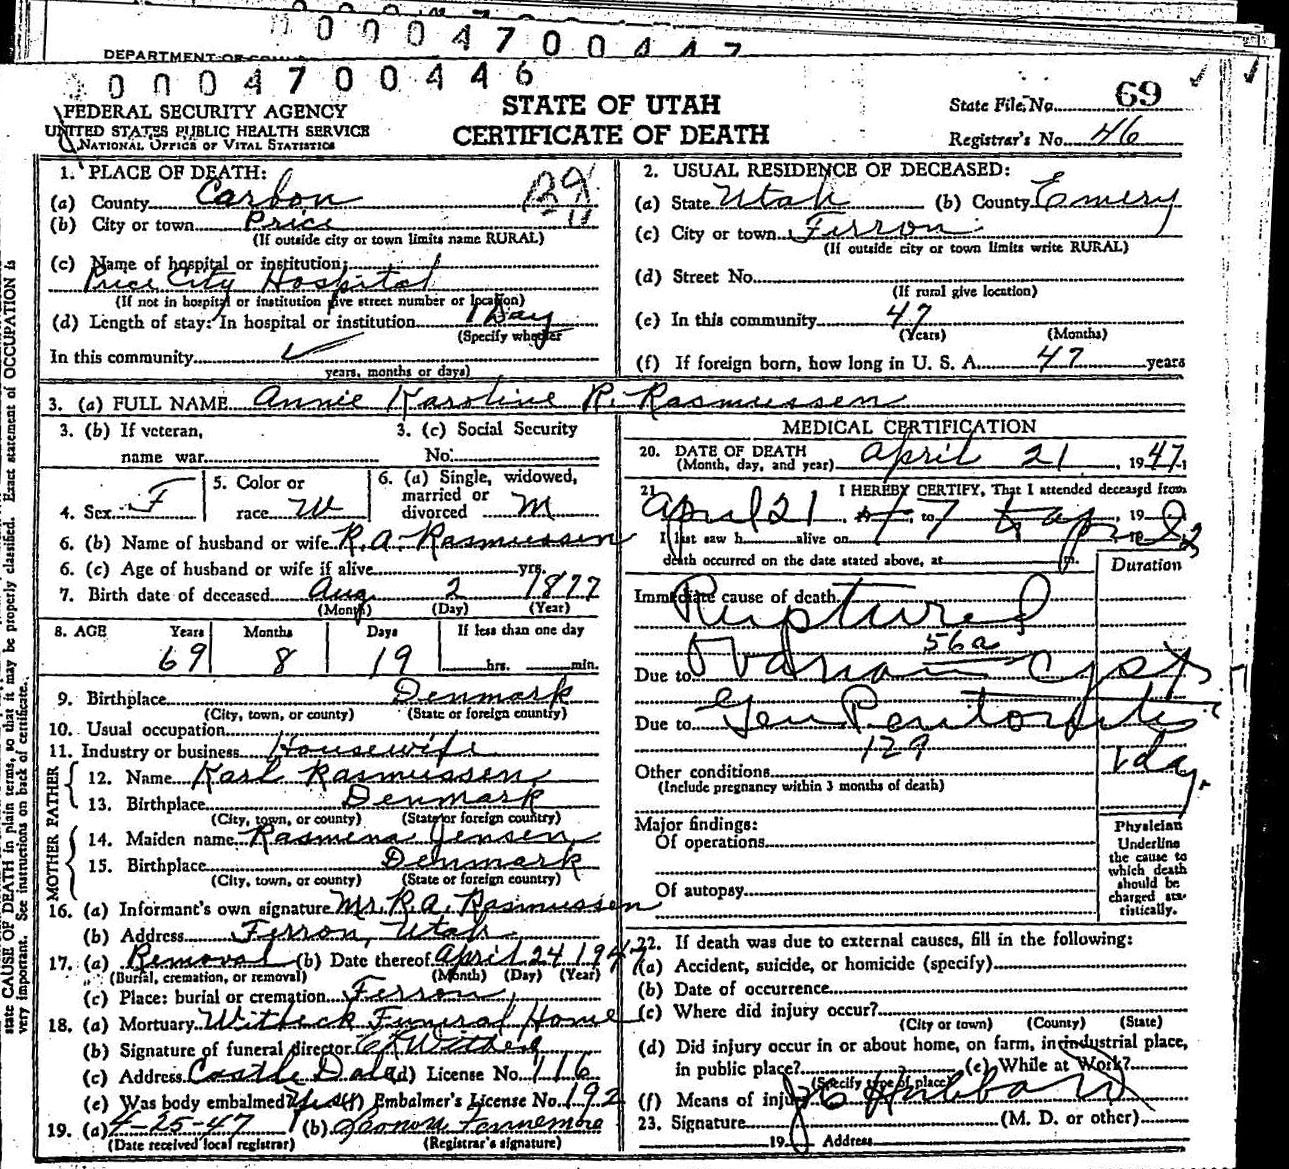 0000470044
DEPARTMENT OF
0000470446
FEDERAL SECURITY AGENCY
UNITED STATES PUBLIC HEALTH SERVICE
NATIONAL OFFICE OF VITAL STATISTICS
STATE OF UTAH
CERTIFICATE OF DEATH
State File No. 69
Registrar's No. 46
1. PLACE OF DEATH:
(a) County Carbon
(b) City or town Price
(If outside city or town limits name RURAL)
(c) Name of hospital or institution:
Price City Hospital
(If not in hospital or institution give street number or location)
(d) Length of stay: In hospital or institution 1 Day
(Specify whether
In this community
years, months or days)
2. USUAL RESIDENCE OF DECEASED:
(a) State Utah (b) County Emery
(c) City or town Ferron
(If outside city or town limits write RURAL)
(d) Street No.
(If rural give location)
(e) In this community 47
(Years) (Months)
(f) If foreign born, how long in U. S. A. 47 years
3. (a) FULL NAME Annie Karoline R. Rasmussen
3. (b) If veteran, name war
3. (c) Social Security No.
4. Sex F
5. Color or race W
6. (a) Single, widowed, married or divorced M
6. (b) Name of husband or wife R. A. Rasmussen
6. (c) Age of husband or wife if alive yrs.
7. Birth date of deceased Aug 2 1877
(Month) (Day) (Year)
8. AGE Years Months Days If less than one day
69 8 19 hrs. min.
9. Birthplace Denmark
(City, town, or county) (State or foreign country)
10. Usual occupation
11. Industry or business Housewife
FATHER
12. Name Karl Rasmussen
13. Birthplace Denmark
(City, town, or county) (State or foreign country)
MOTHER
14. Maiden name Rasmena Jensen
15. Birthplace Denmark
(City, town, or county) (State or foreign country)
16. (a) Informant's own signature Mr. R. A. Rasmussen
(b) Address Ferron, Utah
17. (a) Removal (b) Date thereof April 24 1947
(Burial, cremation, or removal) (Month) (Day) (Year)
(c) Place: burial or cremation Ferron
18. (a) Mortuary Witbeck Funeral Home
(b) Signature of funeral director
(c) Address Castle Dale (d) License No. 116
(e) Was body embalmed? Yes (f) Embalmer's License No. 192
19. (a) 4-25-47 (b)
(Date received local registrar) (Registrar's signature)
MEDICAL CERTIFICATION
20. DATE OF DEATH
(Month, day, and year) April 21, 1947
21. I HEREBY CERTIFY, That I attended deceased from
April 21
I last saw h alive on
death occurred on the date stated above, at m.
Duration
Immediate cause of death Ruptured
56a
Due to Ovarian Cyst
Due to Gen Peritonitis
129
1 day.
Other conditions
(Include pregnancy within 3 months of death)
Major findings:
Of operations
Of autopsy
Physician
Underline
the cause to
which death
should be
charged sta-
tistically.
22. If death was due to external causes, fill in the following:
(a) Accident, suicide, or homicide (specify)
(b) Date of occurrence
(c) Where did injury occur?
(City or town) (County) (State)
(d) Did injury occur in or about home, on farm, in industrial place,
in public place? (e) While at Work?
(Specify type of place)
(f) Means of injury
23. Signature (M. D. or other)
19 Address
state CAUSE OF DEATH in plain terms, so that it may be properly classified. Exact statement of OCCUPATION is
very important. See instructions on back of certificate.